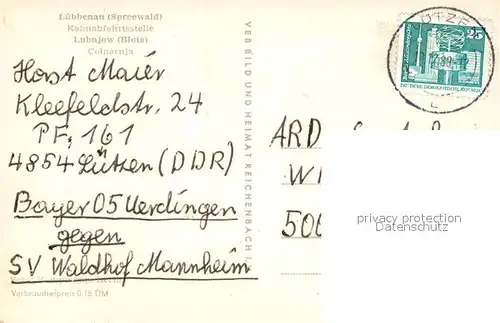 Lübbenau (Spreewald)
Kahnabfahrtsstelle
Lubnjow (Błota)
Cołnarnja
Horst Maier
Kleefeldstr. 24
PF. 161
4854 Lützen (DDR)
Bayer 05 Uerdingen
gegen
SV Waldhof Mannheim
Verbraucherpreis 0.15 DM
VEB BILD UND HEIMAT REICHENBACH I.
25
DEUTSCHE DEMOKRATISCHE REPUBLIK
ARD
W
500
privacy protection
Datenschutz